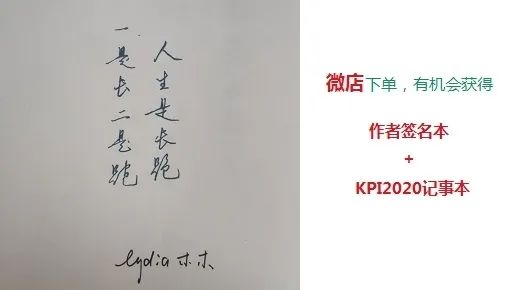 人生是长跑
一是长二是跑
lydia 木木
微店下单，有机会获得
作者签名本
+
KPI2020记事本